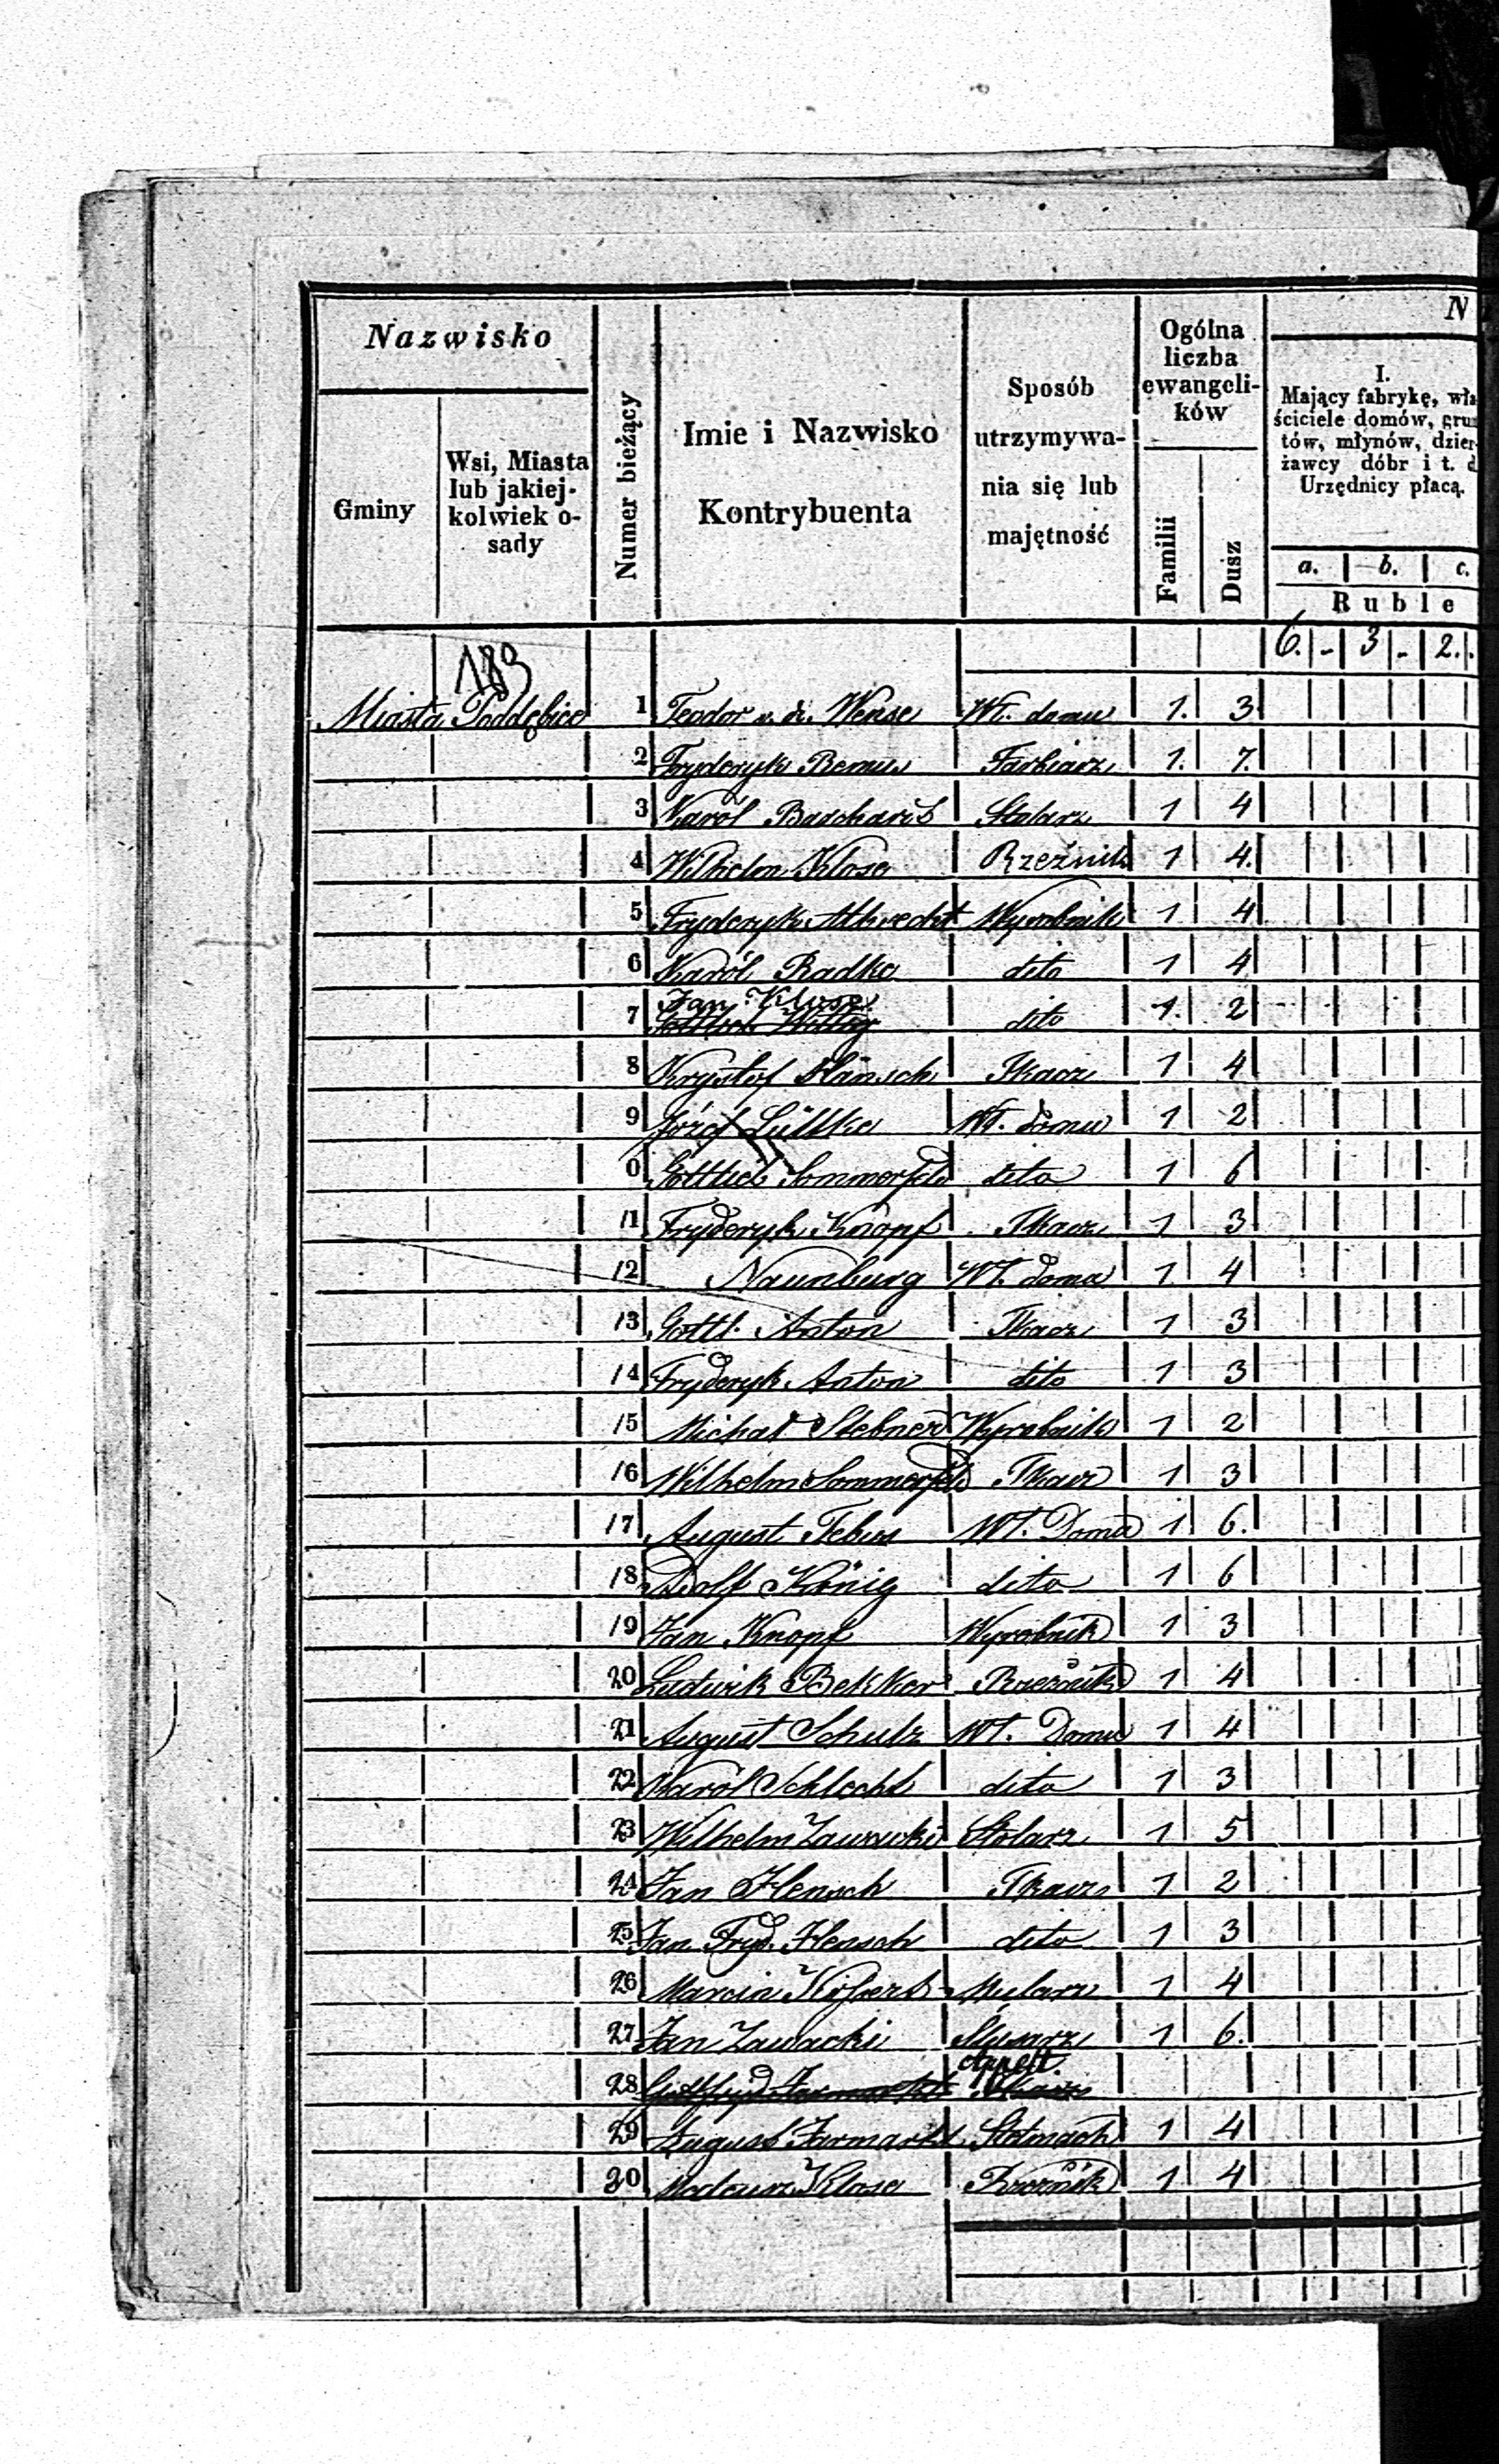 Nazwisko
Gminy
Wsi, Miasta
lub jakiej-
kolwiek o-
sady
Numer bieżący
Imie i Nazwisko
Kontrybuenta
Sposób
utrzymywa-
nia się lub
majętność
Ogólna
liczba
ewangeli-
ków
Familii
Dusz
N
I.
Mający fabrykę, wła
ściciele domów, grun
tów, młynów, dzier-
żawcy dóbr i t. d
Urzędnicy płacą.
a. b. c.
Ruble
6. - 3 - 2.
183
Miasta Poddębice 1 Teodor v. d. Wense Wł. domu 1. 3
2 Fryderyk Farbiarz 1. 7.
3 Karól Stolarz 1 4
4 Wilhelm Klose Rzeźnik 1 4.
5 Fryderyk Albrecht Wyrobnik 1 4
6 Karól Radke dito 1 4
Jan Klose
7 dito 1. 2
8 Krysztof Hänsch Tkacz 1 4
9 Józef Lüttke Wł. domu 1 2
0 Gottlieb Sommerfeld dito 1 6
11 Fryderyk Knopf Tkacz 1 3
12 Naumburg Wł. domu 1 4
13 Gottl. Anton Tkacz 1 3
14 Fryderyk Anton dito 1 3
15 Michał Stebner Wyrobnik 1 2
16 Wilhelm Sommerfeld Tkacz 1 3
17 August Wł. Domu 1 6.
18 Adolf König dito 1 6
19 Jan Knopf Wyrobnik 1 3
20 Ludwik Bekker Rzeźnik 1 4
21 August Schulz Wł. Domu 1 4
22 Karól Schlecht dito 1 3
23 Wilhelm Stolarz 1 5
24 Jan Hensch Tkacz 1 2
25 Jan Fryd. Hensch dito 1 3
26 Marcin Mularz 1 4
27 Jan Zawacki Ślusarz 1 6.
28
29 August Jarmarkt Stelmach 1 4
30 Klose Rzeźnik 1 4